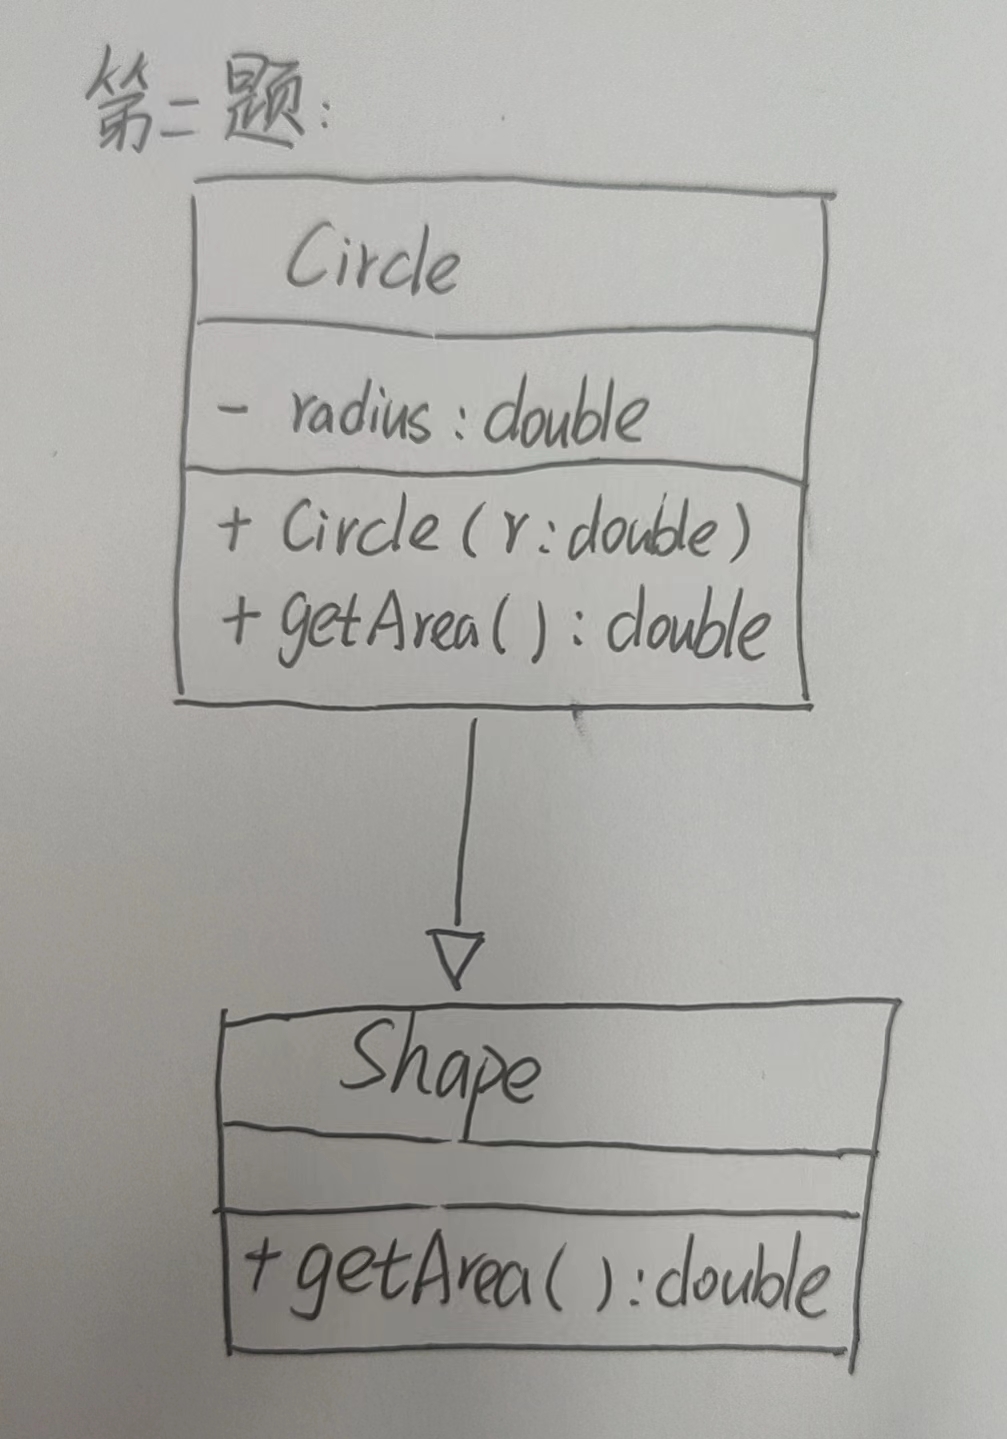 第二题:
Circle
- radius : double
+ Circle ( r : double )
+ getArea ( ) : double
Shape
+ getArea ( ) : double